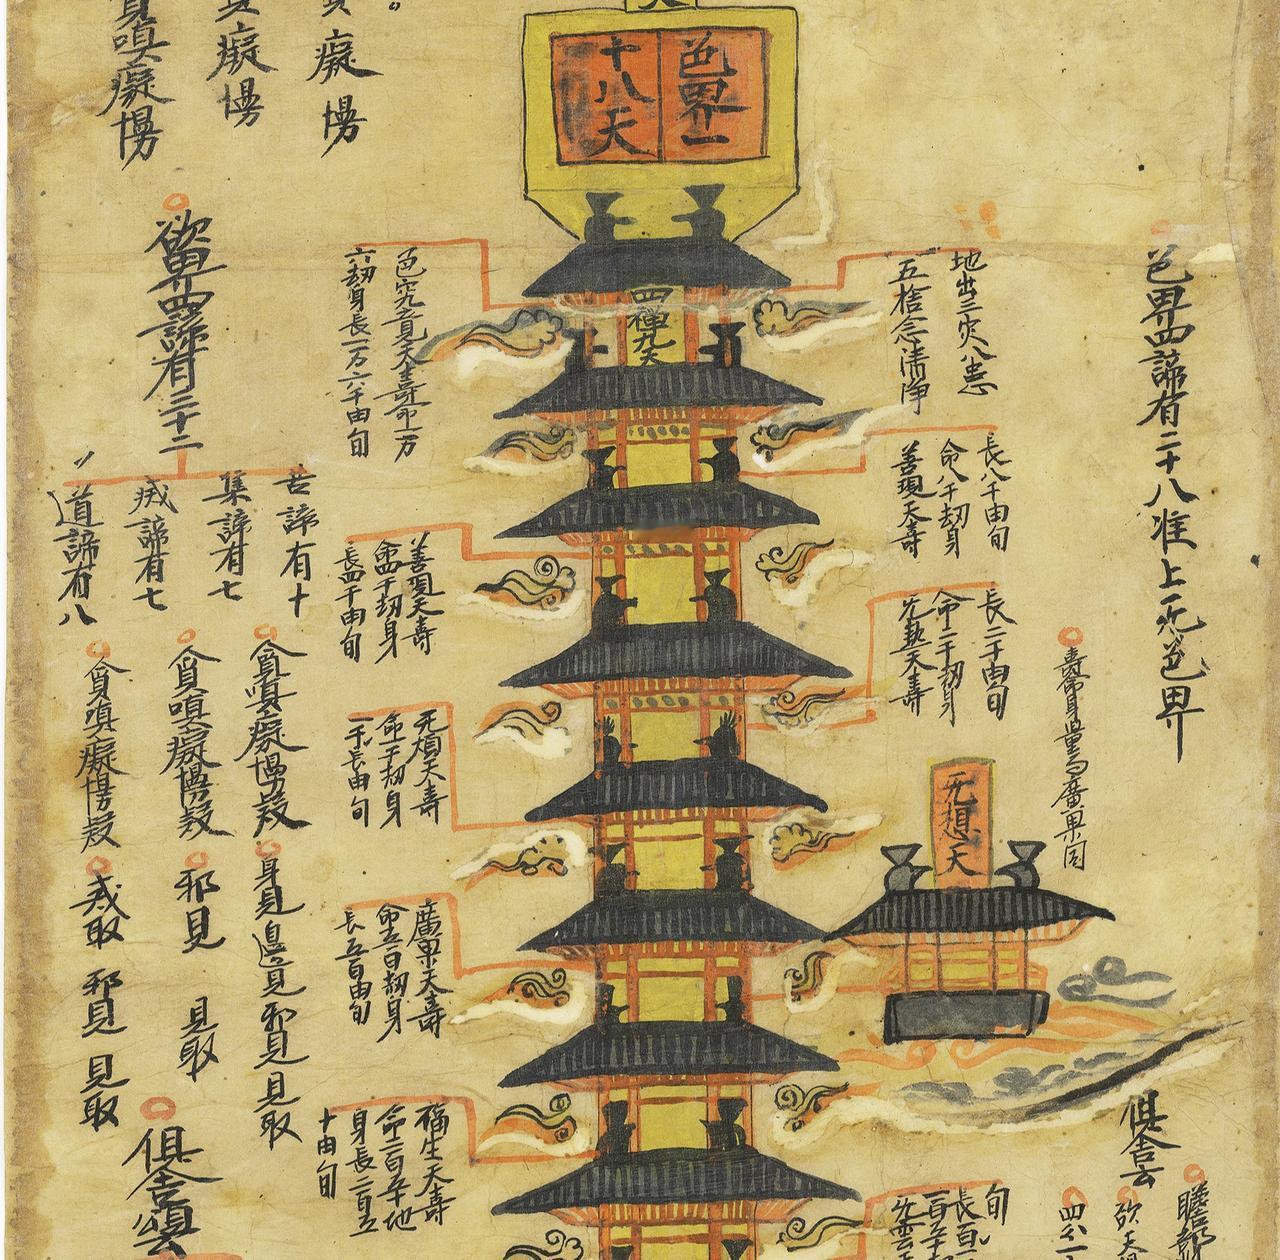 色界一
十八天
四禪九天
色界四諦有二十八准上无色界
地出三灾八患
五捨念清淨
色究竟天壽命一万
六劫身長一万六千由旬
長八千由旬
命八千劫身
善現天壽
善現天壽
命四千劫身
長四千由旬
長二千由旬
命二千劫身
无熱天壽
无煩天壽
命一千劫身
一千長由旬
壽命身量与廣果同
无想天
廣果天壽
命五百劫身
長五百由旬
福生天壽
命二百五十地
身長二百五
十由旬
俱舍云
旬
長百二
瞻部
欲天
癡慢
癡慢
貪嗔癡慢
欲界四諦有三十二
苦諦有十
集諦有七
滅諦有七
道諦有八
貪嗔癡慢疑
身見邊見邪見見取
貪嗔癡慢疑
邪見
見取
貪嗔癡慢疑
戒取
邪見
見取
俱舍頌云